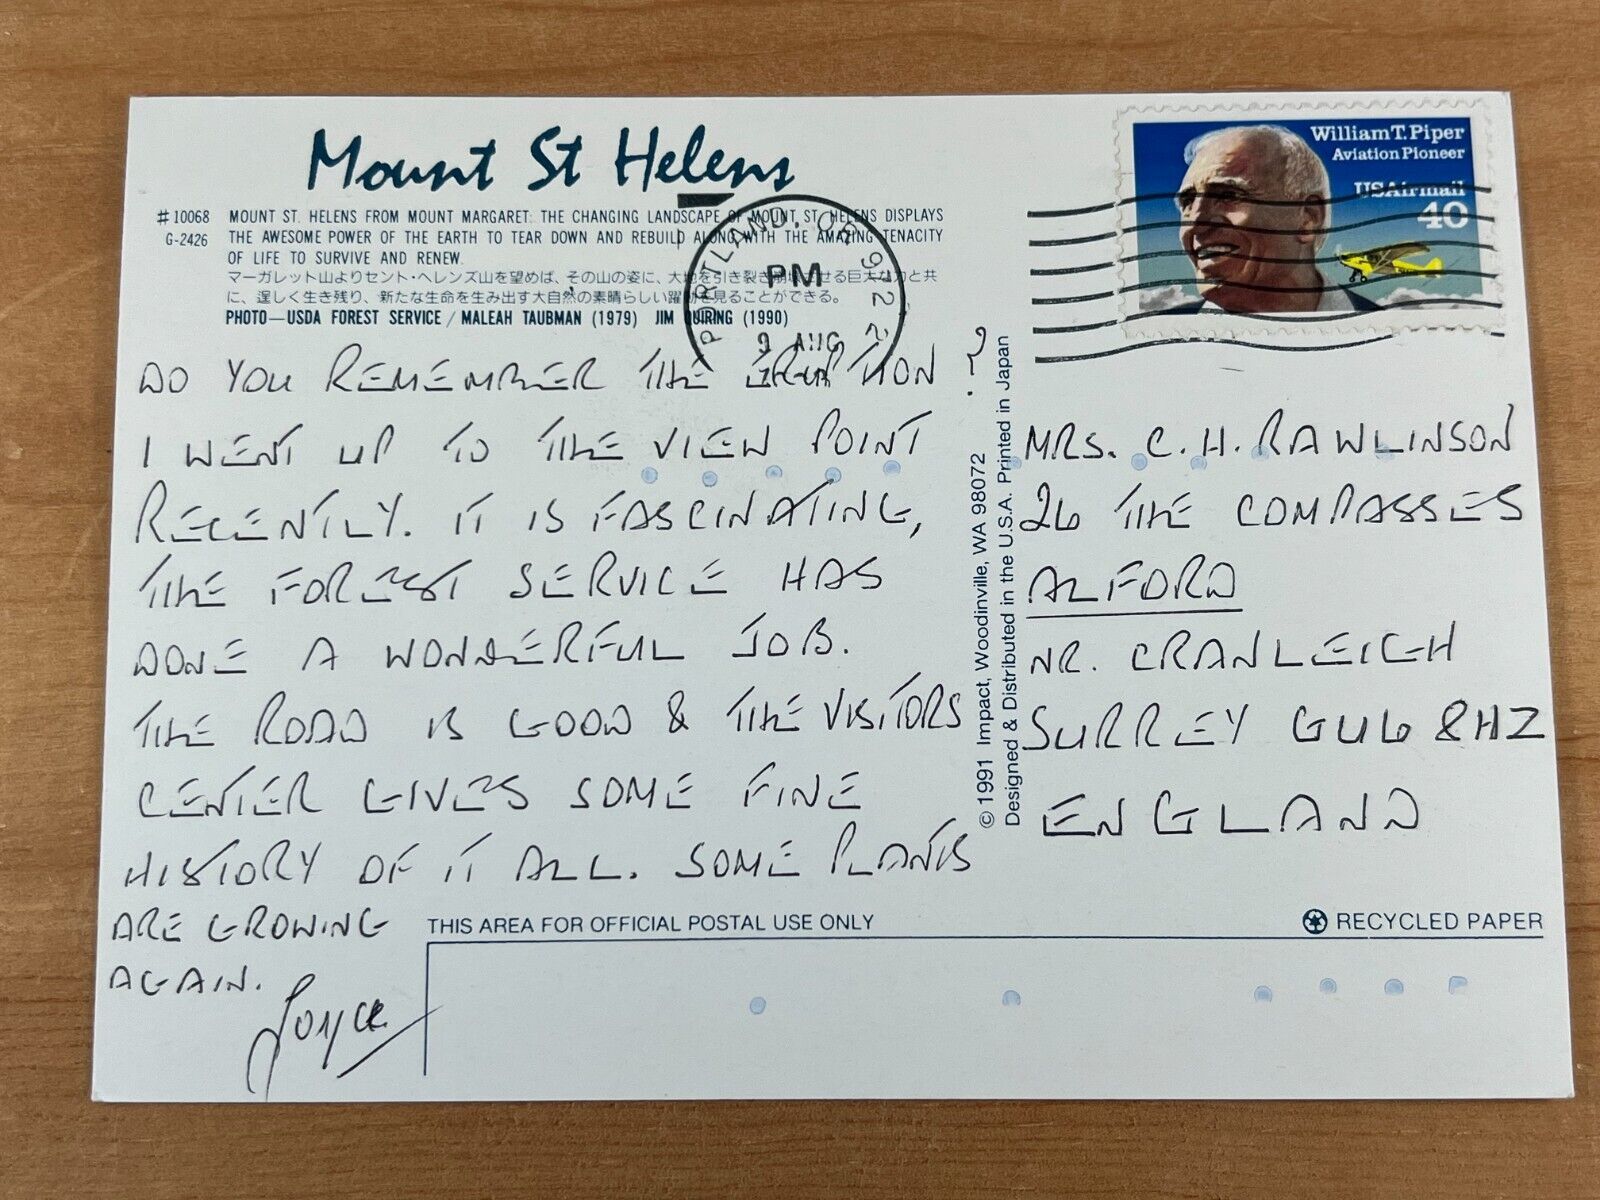 Mount St Helens
#10068 MOUNT ST. HELENS FROM MOUNT MARGARET: THE CHANGING LANDSCAPE OF MOUNT ST. HELENS DISPLAYS
G-2426 THE AWESOME POWER OF THE EARTH TO TEAR DOWN AND REBUILD ALONG WITH THE AMAZING TENACITY
OF LIFE TO SURVIVE AND RENEW.
マーガレット山よりセント・ヘレンズ山を望めば、その山の姿に、大地を引き裂き崩壊させる巨大な力と共
に、逞しく生き残り、新たな生命を生み出す大自然の素晴らしい躍動を見ることができる。
PHOTO—USDA FOREST SERVICE / MALEAH TAUBMAN (1979) JIM QUIRING (1990)
PORTLAND, OR 972 2
PM
9 AUG
William T. Piper
Aviation Pioneer
USAirmail
40
DO YOU REMEMBER THE ERUPTION ?
I WENT UP TO THE VIEW POINT
RECENTLY. IT IS FASCINATING,
THE FOREST SERVICE HAS
DONE A WONDERFUL JOB.
THE ROAD IS GOOD & THE VISITORS
CENTER GIVES SOME FINE
HISTORY OF IT ALL. SOME PLANTS
ARE GROWING
AGAIN.
Joyce
© 1991 Impact, Woodinville, WA 98072
Designed & Distributed in the U.S.A. Printed in Japan
MRS. C. H. RAWLINSON
26 THE COMPASSES
ALFORD
NR. CRANLEIGH
SURREY GU6 8HZ
ENGLAND
THIS AREA FOR OFFICIAL POSTAL USE ONLY
RECYCLED PAPER